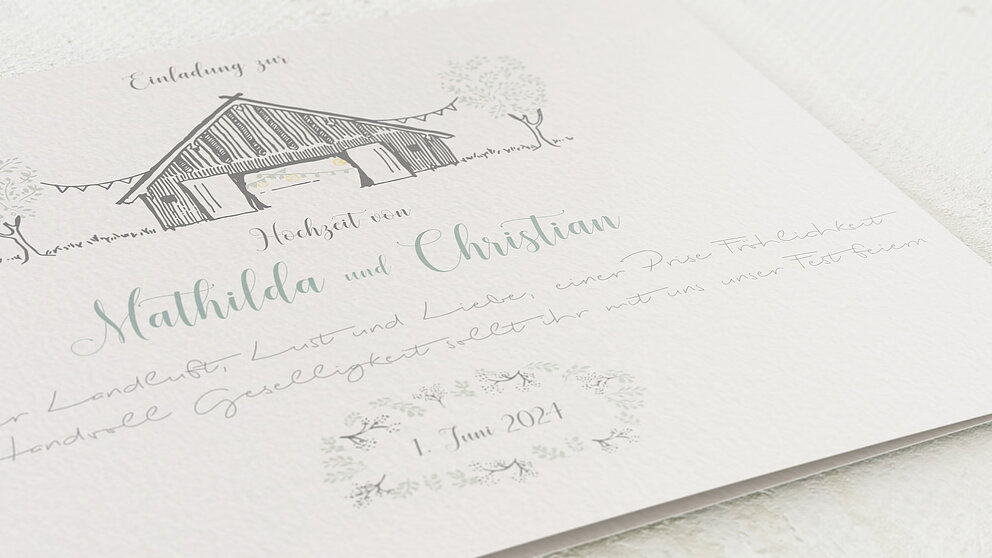 Einladung zur
Hochzeit von
Mathilda und Christian
er Landluft, Lust und Liebe, einer Prise Fröhlichkeit
Handvoll Geselligkeit sollt ihr mit uns unser Fest feiern
1. Juni 2024